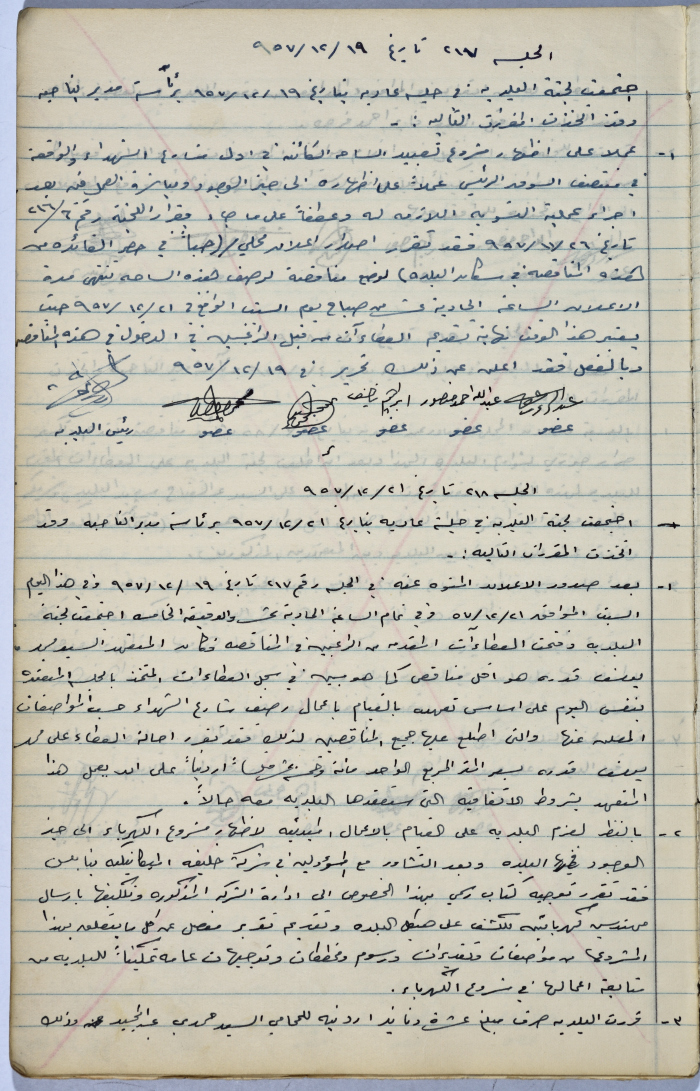 الجلسه ٢١٧ تاريخ ١٩/١٢/٩٥٧
اجتمعت لجنة البلديه في جلسه عاديه بتاريخ ١٩/١٢/٩٥٧ برئاسة مدير الناحيه
وقد اتخذت المقررات التاليه :-
١- عملا على اظهار مشروع تعبيد الساحه الكائنه في اول شارع الشهداء والواقعة
في منتصف السوق الرئيس عملاً على اظهاره الى حيز الوجود ومباشرة العمل فيه بعد
اجراء عملية التسوية اللازمه له وعطفاً على ما جاء بقرار اللجنة رقم ٢١٦/٦
تاريخ ٢٦/١١/٩٥٧ فقد تقرر اصدار اعلان محلي (حباً في حصر الفائده من
هذه المناقصه في سكان البلده) لوضع مناقصة لرصف هذه الساحه تنتهي مدة
الاعلان الساعة الحادية عشر من صباح يوم السبت الواقع في ٢١/١٢/٩٥٧ حيث
يعتبر هذا الوقت نهاية لتقديم العطاءآت من قبل الراغبين في الدخول في هذه المناقصه
وبالفعل فقد اعلن عن ذلك تحرير في ١٩/١٢/٩٥٧
عبدالله احمد منصور ابراهيم
عضو عضو عضو عضو عضو رئيس البلديه
الجلسه ٢١٨ تاريخ ٢١/١٢/٩٥٧
اجتمعت لجنة البلديه في جلسة عاديه بتاريخ ٢١/١٢/٩٥٧ برئاسة مدير الناحيه وقد
اتخذت المقررات التاليه :-
١- بعد صدور الاعلان المنوه عنه في الجلسه رقم ٢١٧ تاريخ ١٩/١٢/٩٥٧ وفي هذا اليوم
السبت الموافق ٢١/١٢/٥٧ وفي تمام الساعة الحادية عشر والدقيقة الخامسه اجتمعت لجنة
البلديه وفتحت العطاءآت المقدمه من الراغبين في المناقصه فكان المتعهد السيد محمد
يوسف قدوره هو اقل مناقص كما هو مبين في سجل العطاءات المتخذ بالجلسه المنعقده
بنفس اليوم على اساس تعهده بالقيام باعمال رصيف شارع الشهداء حسب المواصفات
المعلن عنها والتي اطلع عليها جميع المناقصين لذلك فقد تقرر احالة العطاء على محمد
يوسف قدوره بسعر المتر المربع الواحد مائة وتسعة عشر فلساً اردنياً على ان يعمل هذا
المتعهد بشروط الاتفاقية التي ستعقدها البلديه معه حالاً .
٢- بالنظر لعزم البلديه على القيام بالاعمال المبدئيه لاظهار مشروع الكهرباء الى حيز
الوجود في هذه البلده وبعد التشاور مع المسؤولين في شركة خليفه الميكانيكيه بنابلس
فقد تقرر توجيه كتاب رسمي بهذا الخصوص الى ادارة الشركه المذكوره وتكليفها بارسال
مهندسين كهربائيين للكشف على هيكل البلده وتقديم تقرير مفصل عن كل ما يتعلق بهذا
المشروع من مواصفات وتقديرات ورسوم ومخططات وتوجيهات عامه تمكيناً للبلديه من
متابعة اعمالها في مشروع الكهرباء .
٣- قررت البلديه صرف مبلغ عشرة دنانير اردنيه للمحامي السيد حمدي عبدالمجيد وذلك